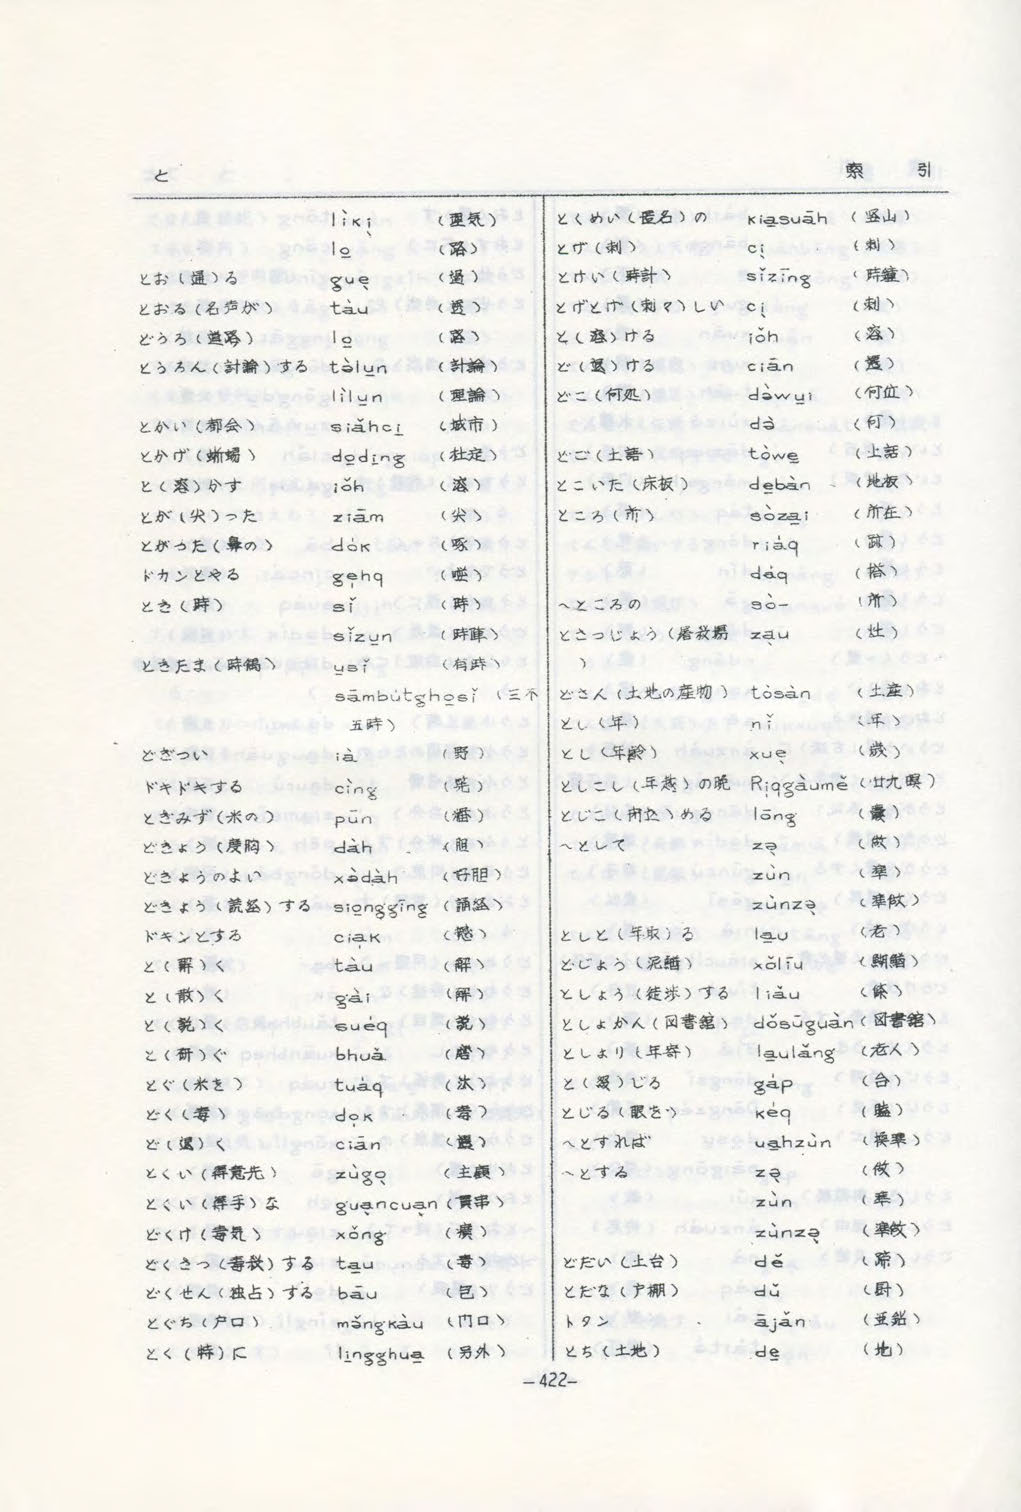 と
索引
lìkị (理気)
lo̲ (路)
とお(通)る gue̲ (過)
とおる(名声が) tàu (透)
どうろ(道路) lo̲ (路)
とうろん(討論)する tòlu̲n (討論)
lìlu̲n (理論)
とかい(都会) siǎhci̲ (城市)
とかげ(蜥蜴) do̲di̲ng (杜定)
と(溶)かす iǒh (溶)
とが(尖)った ziām (尖)
とがった(鼻の) dók (啄)
ドカンとやる gẹhq
とき(時) sǐ (時)
sǐzu̲n (時陣)
ときたま(時偶) u̲sǐ (有時)
sāmbútgho̲sǐ (三不
五時)
どぎつい ià (野)
ドキドキする cìng
とぎみず(米の) pūn (潘)
どきょう(度胸) dàh (胆)
どきょうのよい xə̀dàh (好胆)
どきょう(読経)する sio̲nggīng (誦経)
ドキンとする cia̲k
と(解)く tàu (解)
と(散)く gài (解)
と(説)く suéq (説)
と(研)ぐ bhuǎ (磨)
とぐ(米を) tuáq (汰)
どく(毒) do̲k (毒)
ど(退)く ciān (遷)
とくい(得意先) zùgọ (主顧)
とくい(得手)な gua̲ncua̲n (貫串)
どくけ(毒気) xǒng (癀)
どくさつ(毒殺)する ta̲u (毒)
どくせん(独占)する bāu (包)
とぐち(戸口) mə̌ngkàu (門口)
とく(特)に li̲ngghua̲ (另外)
とくめい(匿名)の kia̲suāh (竪山)
とげ(刺) cị (刺)
とけい(時計) sǐzīng (時鐘)
とげとげ(刺々)しい cị (刺)
と(溶)ける iǒh (溶)
ど(退)ける ciān (遷)
どこ(何処) də̀wu̲i (何位)
də̀ (何)
どご(土語) tòwe̲ (土話)
とこいた(床板) de̲bàn (地板)
ところ(所) sòza̲i (所在)
riáq (跡)
dáq (搭)
〜ところの sò- (所)
とさつじょう(屠殺場 zạu (灶)
)
どさん(土地の産物) tòsàn (土産)
とし(年) nǐ (年)
とし(年齢) xuẹ (歳)
としこし(年越)の晩 Rịqgàumě (廿九暝)
とじこ(閉込)める lōng
〜として zə̣ (做)
zùn (準)
zùnzə̣ (準做)
としと(年取)る la̲u (老)
どじょう(泥鰌) xǒlīu
としょう(徒歩)する liǎu
としょかん(図書館) dǒsūguàn (図書舘)
としより(年寄) la̲ulǎng (老人)
と(綴)じる gáp (合)
とじる(眼を) kéq (瞌)
〜とすれば ua̲hzùn (換準)
〜とする zə̣ (做)
zùn (準)
zùnzə̣ (準做)
どだい(土台) dě
とだな(戸棚) dǔ (厨)
トタン āján (亜鉛)
とち(土地) de̲ (地)
-422-